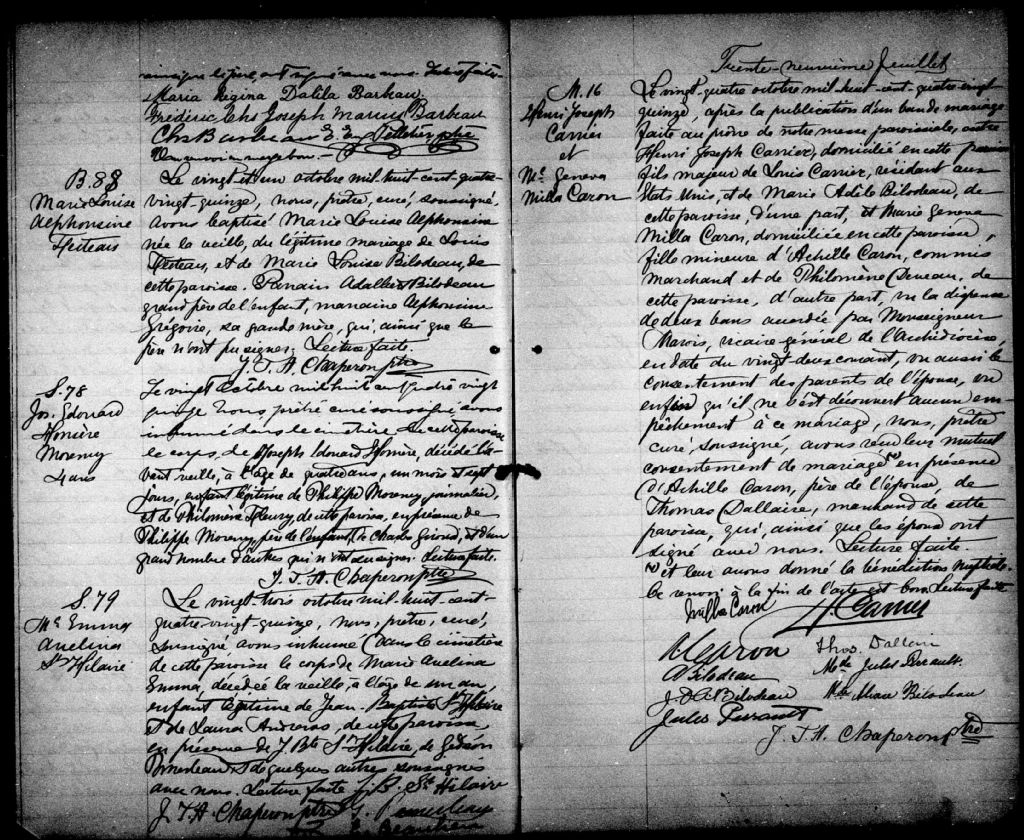 Maria Regina Dalila Barbeau
Frédéric Chs Joseph Marius Barbeau
Chs Barbeau E. Pelletier ptre
B. 88
Marie Louise
Alphonsine
Le vingt et un octobre mil-huit-cent-quatre-
vingt-quinze, nous, prêtre, curé, soussigné,
avons baptisé Marie Louise Alphonsine
née la veille, du légitime mariage de Louis
et de Marie Louise Bilodeau, de
cette paroisse. Parrain Adalbert Bilodeau
grand père de l'enfant, marraine Alphonsine
Grégoire, sa grande mère, qui, ainsi que le
père n'ont pu signer. Lecture faite.
J. T. A. Chaperon ptre
S. 78
Jos. Edouard
Homère
Morency
4 ans
Le vingt octobre mil huit cent quatre vingt
quinze nous, prêtre curé soussigné, avons
inhumé dans le cimetière de cette paroisse
le corps, de Joseph Edouard Homère, décédé l'a-
vant veille, à l'âge de quatre ans, un mois et sept
jours, enfant légitime de Philippe Morency, journalier,
et de Philomène Fleury, de cette paroisse, en présence de
Philippe Morency, père de l'enfant, de Charles Giroux, et d'un
grand nombre d'autres qui n'ont su signer. Lecture faite.
J. T. A. Chaperon ptre
S. 79
Me Emma
Avelina
St Hilaire
Le vingt-trois octobre mil-huit-cent-
quatre-vingt-quinze, nous, prêtre, curé,
soussigné avons inhumé dans le cimetière
de cette paroisse le corps de Marie Avelina
Emma, décédée la veille, à l'âge de un an,
enfant légitime de Jean-Baptiste St Hilaire
et de Laura Andrews, de cette paroisse,
en présence de J. Bte St Hilaire, de Gédéon
et de quelques autres soussignés
avec nous. Lecture faite J. B. St Hilaire
J. T. A. Chaperon ptre G.
Trente-neuvième feuillet
M. 16
Henri Joseph
Carrier
et
Me Geneva
Milla Caron
Le vingt-quatre octobre mil-huit-cent-quatre-vingt
quinze, après la publication d'un ban de mariage
faite au prône de notre messe paroissiale, entre
Henri Joseph Carrier, domicilié en cette paroisse
fils majeur de Louis Carrier, résidant aux
Etats Unis, et de Marie Adèle Bilodeau, de
cette paroisse, d'une part, et Marie Geneva
Milla Caron, domiciliée en cette paroisse,
fille mineure d'Achille Caron, commis
marchand et de Philomène Duneau, de
cette paroisse, d'autre part, vu la dispense
de deux bans accordée par Monseigneur
Marois, vicaire général de l'Archidiocèse,
en date du vingt deux courant, vu aussi le
consentement des parents de l'épouse, vu
enfin qu'il ne s'est découvert aucun em-
pêchement à ce mariage, nous, prêtre
curé, soussigné, avons reçu leur mutuel
consentement de mariage en présence
d'Achille Caron, père de l'épouse, de
Thomas Dallaire, marchand de cette
paroisse, qui, ainsi que les époux ont
signé avec nous. Lecture faite.
et leur avons donné la bénédiction nuptiale.
Ce renvoi à la fin de l'acte est bon Lecture faite
Milla Caron H Carrier
A Caron Thos. Dallaire
A Bilodeau Mde Jules Perrault
J. O. A. Bilodeau Bilodeau
Jules Perrault
J. T. A. Chaperon Ptre